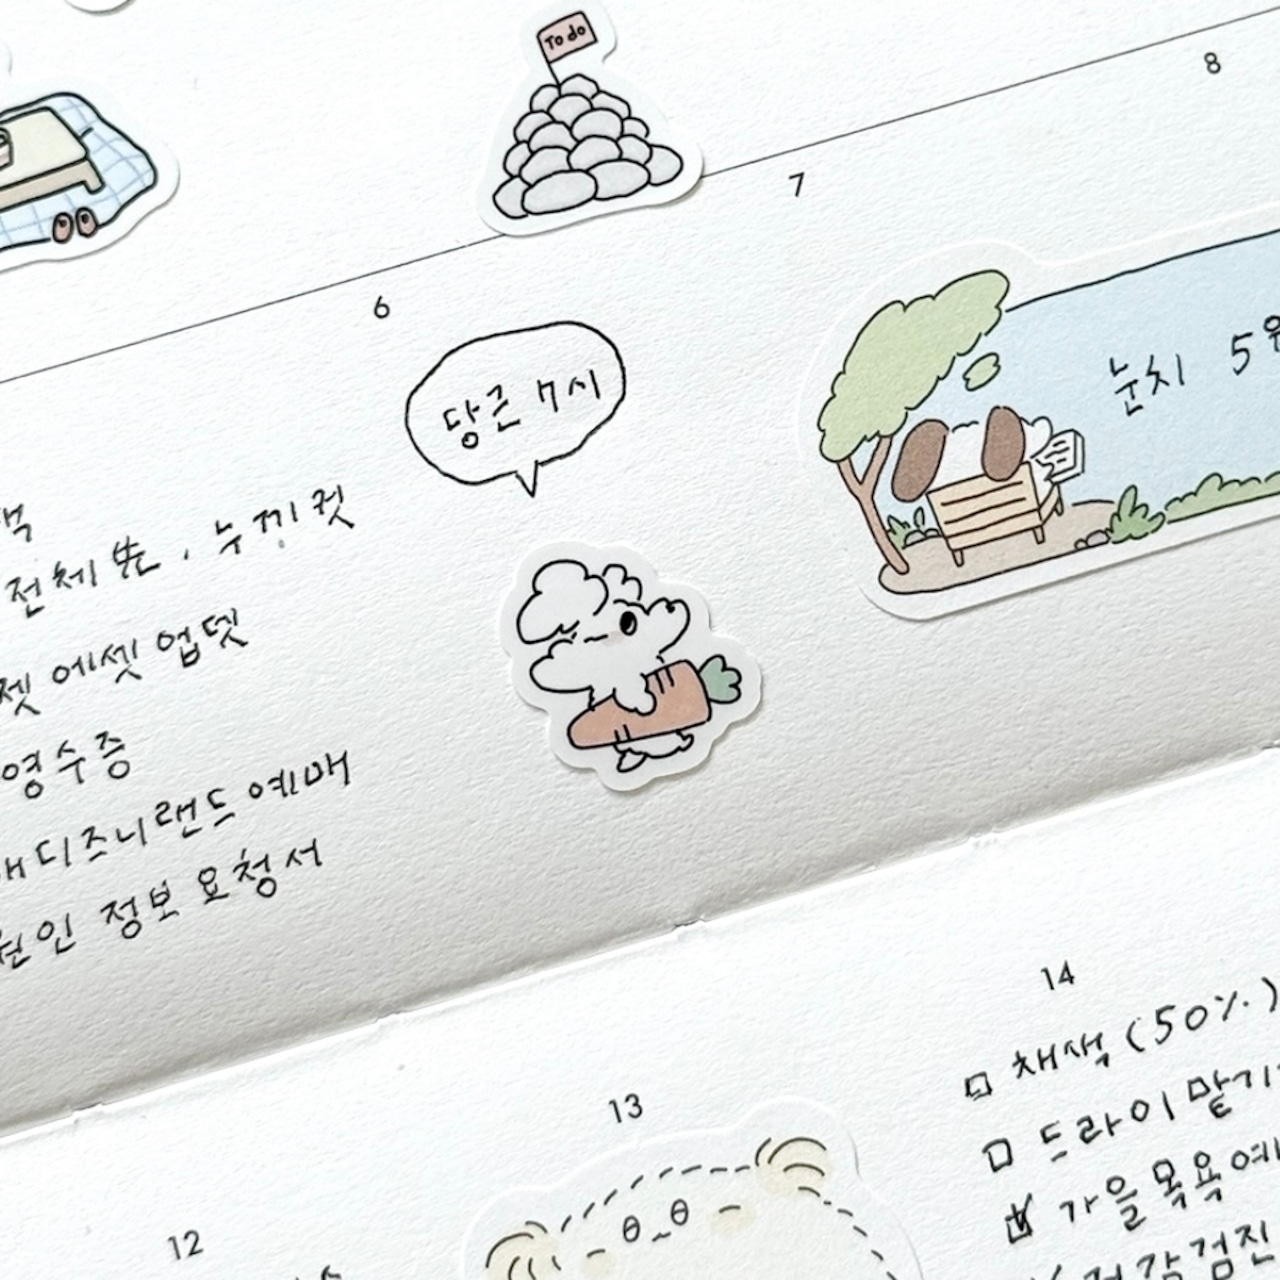 To do
8
7
6
당근 7시
눈치 5
전체 샘 . 누끼컷
에셋 업뎃
영수증
디즈니랜드 예매
원인 정보 요청서
14
채색 (50%)
13
드라이 맡기
12
가을 목욕 예
건강검진